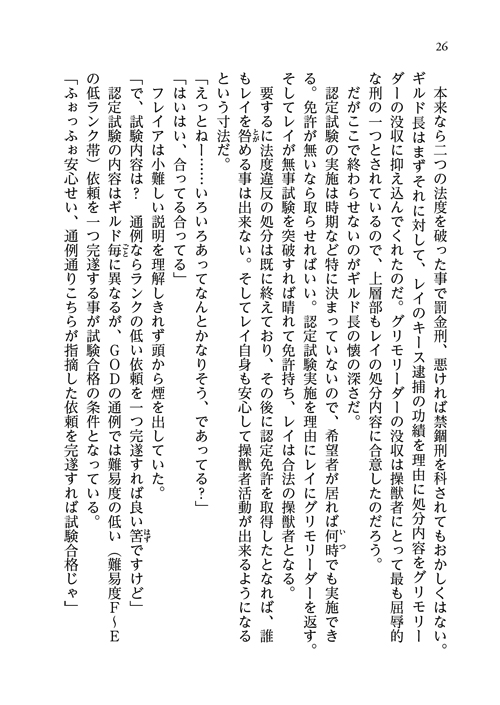 26
　本来なら二つの法度を破った事で罰金刑、悪ければ禁錮刑を科されてもおかしくはない。
ギルド長はまずそれに対して、レイのキース逮捕の功績を理由に処分内容をグリモリー
ダーの没収に抑え込んでくれたのだ。グリモリーダーの没収は操獣者にとって最も屈辱的
な刑の一つとされているので、上層部もレイの処分内容に合意したのだろう。
　だがここで終わらせないのがギルド長の懐の深さだ。
　認定試験の実施は時期など特に決まっていないので、希望者が居れば何時でも実施でき
る。免許が無いなら取らせればいい。認定試験実施を理由にレイにグリモリーダーを返す。
そしてレイが無事試験を突破すれば晴れて免許持ち、レイは合法の操獣者となる。
　要するに法度違反の処分は既に終えており、その後に認定免許を取得したとなれば、誰
もレイを咎める事は出来ない。そしてレイ自身も安心して操獣者活動が出来るようになる
という寸法だ。
「えっとねー……いろいろあってなんとかなりそう、であってる？」
「はいはい、合ってる合ってる」
　フレイアは小難しい説明を理解しきれず頭から煙を出していた。
「で、試験内容は？　通例ならランクの低い依頼を一つ完遂すれば良い筈ですけど」
　認定試験の内容はギルド毎に異なるが、ＧＯＤの通例では難易度の低い（難易度Ｆ〜Ｅ
の低ランク帯）依頼を一つ完遂する事が試験合格の条件となっている。
「ふぉっふぉ安心せい、通例通りこちらが指摘した依頼を完遂すれば試験合格じゃ」